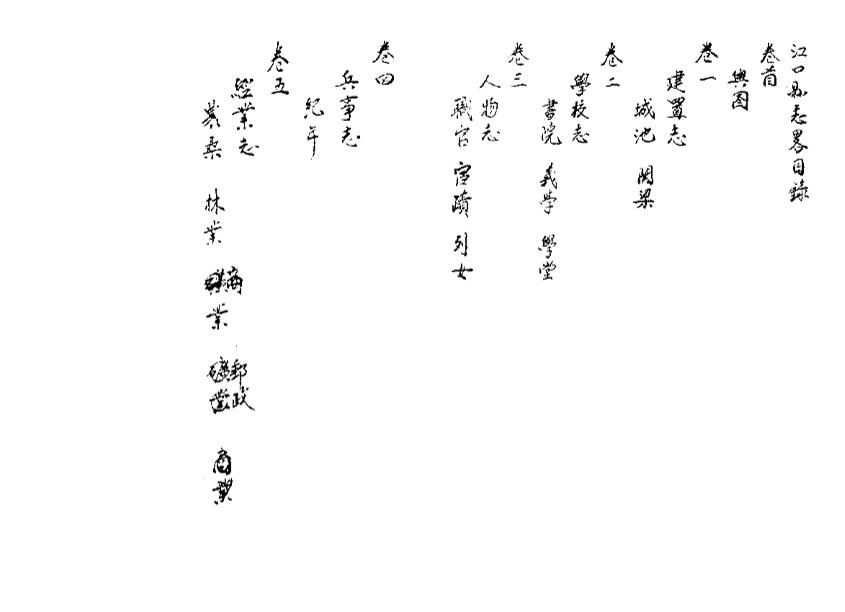 江口县志畧目錄
卷首
輿图
卷一
建置志
城池 関梁
卷二
學校志
書院 義學 學堂
卷三
人物志
職官 宦蹟 列女
卷四
兵事志
紀年
卷五
經業志
農桑 林業 商業 礦業 郵政 商業